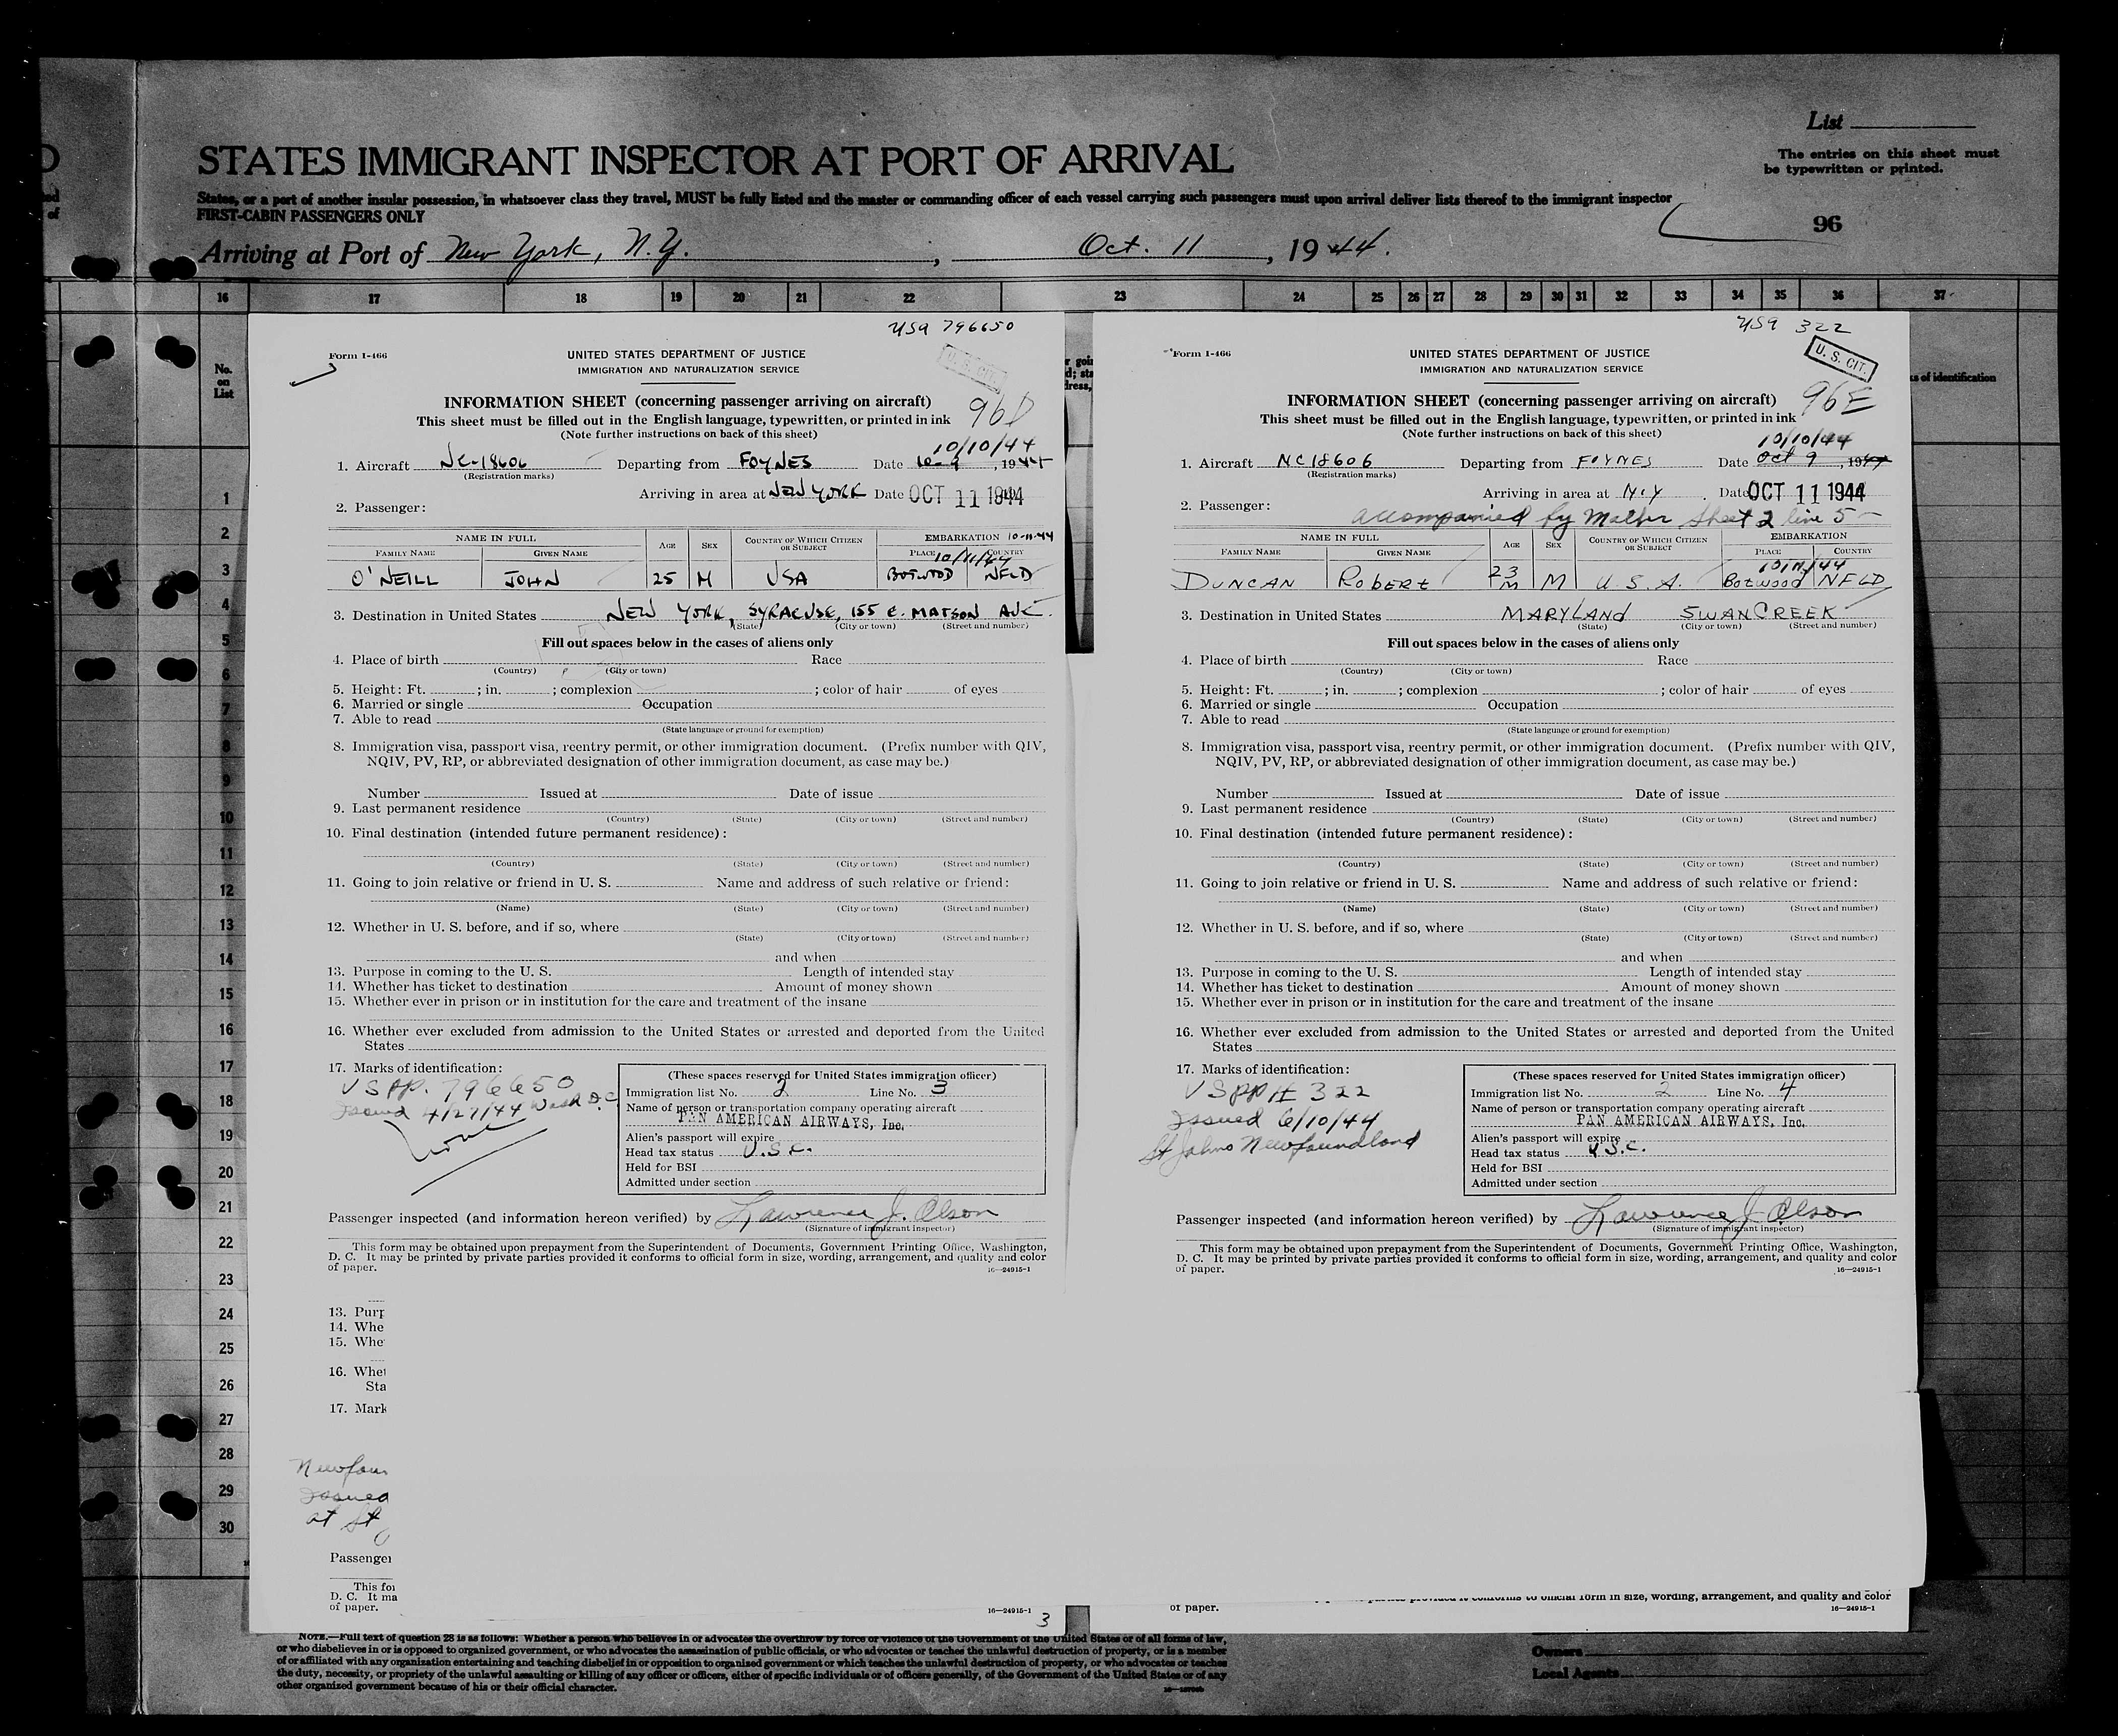 List
The entries on this sheet must
be typewritten or printed.
STATES IMMIGRANT INSPECTOR AT PORT OF ARRIVAL
States, or a port of another insular possession, in whatsoever class they travel, MUST be fully listed and the master or commanding officer of each vessel carrying such passengers must upon arrival deliver lists thereof to the immigrant inspector
FIRST-CABIN PASSENGERS ONLY
96
Arriving at Port of New York, N.Y. , Oct. 11 , 1944.
16 17 18 19 20 21 22 23 24 25 26 27 28 29 30 31 32 33 34 35 36 37
No.
on
List
1
2
3
4
5
6
7
8
9
10
11
12
13
14
15
16
17
18
19
20
21
22
23
24
25
26
27
28
29
30
USA 796650
Form I-466
UNITED STATES DEPARTMENT OF JUSTICE
IMMIGRATION AND NATURALIZATION SERVICE
U. S. CIT.
INFORMATION SHEET (concerning passenger arriving on aircraft)
96D
This sheet must be filled out in the English language, typewritten, or printed in ink
(Note further instructions on back of this sheet)
10/10/44
1. Aircraft NC-18606 Departing from FOYNES Date 10-9, 1944
(Registration marks)
Arriving in area at NEW YORK Date OCT 11 1944
2. Passenger:
NAME IN FULL AGE SEX COUNTRY OF WHICH CITIZEN OR SUBJECT EMBARKATION 10-11-44
FAMILY NAME GIVEN NAME PLACE COUNTRY
10/11/44
O'NEILL JOHN 25 M USA BOTWOOD NFLD
3. Destination in United States NEW YORK, SYRACUSE, 155 E. MATSON AVE.
(State) (City or town) (Street and number)
Fill out spaces below in the cases of aliens only
4. Place of birth Race
(Country) (City or town)
5. Height: Ft. ; in. ; complexion ; color of hair of eyes
6. Married or single Occupation
7. Able to read
(State language or ground for exemption)
8. Immigration visa, passport visa, reentry permit, or other immigration document. (Prefix number with QIV,
NQIV, PV, RP, or abbreviated designation of other immigration document, as case may be.)
Number Issued at Date of issue
9. Last permanent residence
(Country) (State) (City or town) (Street and number)
10. Final destination (intended future permanent residence):
(Country) (State) (City or town) (Street and number)
11. Going to join relative or friend in U. S. Name and address of such relative or friend:
(Name) (State) (City or town) (Street and number)
12. Whether in U. S. before, and if so, where
(State) (City or town) (Street and number)
and when
13. Purpose in coming to the U. S. Length of intended stay
14. Whether has ticket to destination Amount of money shown
15. Whether ever in prison or in institution for the care and treatment of the insane
16. Whether ever excluded from admission to the United States or arrested and deported from the United
States
17. Marks of identification:
US PP. 796650
Issued 4/27/44 Wash D.C.
(These spaces reserved for United States immigration officer)
Immigration list No. 2 Line No. 3
Name of person or transportation company operating aircraft
PAN AMERICAN AIRWAYS, Inc.
Alien's passport will expire
Head tax status U.S.C.
Held for BSI
Admitted under section
Passenger inspected (and information hereon verified) by Lawrence J. Olson
(Signature of immigrant inspector)
This form may be obtained upon prepayment from the Superintendent of Documents, Government Printing Office, Washington,
D. C. It may be printed by private parties provided it conforms to official form in size, wording, arrangement, and quality and color
of paper.
16—24915-1
13. Purp
14. Whe
15. Whe
16. Whet
Sta
17. Mark
Newfoun
Issued
at St
Passenger
This for
D. C. It ma
of paper.
16—24915-1
3
USA 322
Form I-466
UNITED STATES DEPARTMENT OF JUSTICE
IMMIGRATION AND NATURALIZATION SERVICE
U. S. CIT.
s of identification
INFORMATION SHEET (concerning passenger arriving on aircraft)
96E
This sheet must be filled out in the English language, typewritten, or printed in ink
(Note further instructions on back of this sheet)
10/10/44
1. Aircraft NC18606 Departing from FOYNES Date Oct 9, 1944
(Registration marks)
Arriving in area at N.Y. Date OCT 11 1944
2. Passenger: accompanied by Mother Sheet 2 line 5
NAME IN FULL AGE SEX COUNTRY OF WHICH CITIZEN OR SUBJECT EMBARKATION
FAMILY NAME GIVEN NAME PLACE COUNTRY
10/11/44
DUNCAN Robert 23 M M U.S.A. Botwood NFLD
3. Destination in United States MARYLAND SWANCREEK
(State) (City or town) (Street and number)
Fill out spaces below in the cases of aliens only
4. Place of birth Race
(Country) (City or town)
5. Height: Ft. ; in. ; complexion ; color of hair of eyes
6. Married or single Occupation
7. Able to read
(State language or ground for exemption)
8. Immigration visa, passport visa, reentry permit, or other immigration document. (Prefix number with QIV,
NQIV, PV, RP, or abbreviated designation of other immigration document, as case may be.)
Number Issued at Date of issue
9. Last permanent residence
(Country) (State) (City or town) (Street and number)
10. Final destination (intended future permanent residence):
(Country) (State) (City or town) (Street and number)
11. Going to join relative or friend in U. S. Name and address of such relative or friend:
(Name) (State) (City or town) (Street and number)
12. Whether in U. S. before, and if so, where
(State) (City or town) (Street and number)
and when
13. Purpose in coming to the U. S. Length of intended stay
14. Whether has ticket to destination Amount of money shown
15. Whether ever in prison or in institution for the care and treatment of the insane
16. Whether ever excluded from admission to the United States or arrested and deported from the United
States
17. Marks of identification:
US PP # 322
Issued 6/10/44
St Johns Newfoundland
(These spaces reserved for United States immigration officer)
Immigration list No. 2 Line No. 4
Name of person or transportation company operating aircraft
PAN AMERICAN AIRWAYS, Inc.
Alien's passport will expire
Head tax status U.S.C.
Held for BSI
Admitted under section
Passenger inspected (and information hereon verified) by Lawrence J Olson
(Signature of immigrant inspector)
This form may be obtained upon prepayment from the Superintendent of Documents, Government Printing Office, Washington,
D. C. It may be printed by private parties provided it conforms to official form in size, wording, arrangement, and quality and color
of paper.
16—24915-1
to official form in size, wording, arrangement, and quality and color
of paper.
16—24915-1
NOTE.—Full text of question 28 is as follows: Whether a person who believes in or advocates the overthrow by force or violence of the Government of the United States or of all forms of law,
or who disbelieves in or is opposed to organized government, or who advocates the assassination of public officials, or who advocates or teaches the unlawful destruction of property, or is a member
of or affiliated with any organization entertaining and teaching disbelief in or opposition to organized government or which teaches the unlawful destruction of property, or who advocates or teaches
the duty, necessity, or propriety of the unlawful assaulting or killing of any officer or officers, either of specific individuals or of officers generally, of the Government of the United States or of any
other organized government because of his or their official character.
Owners
Local Agents